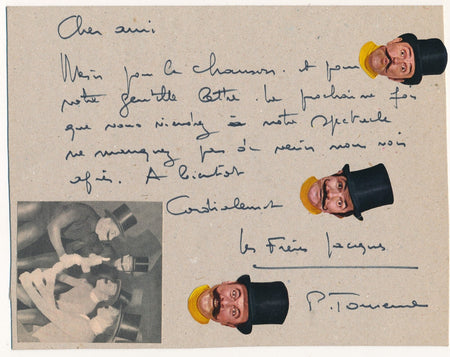 Cher ami,
Merci pour la chanson. et pour
votre gentille lettre. La prochaine fois
que vous viendrez à notre spectacle
ne manquez pas de venir nous voir
après. A bientôt
Cordialement
Les Frères Jacques
P. Tourenne